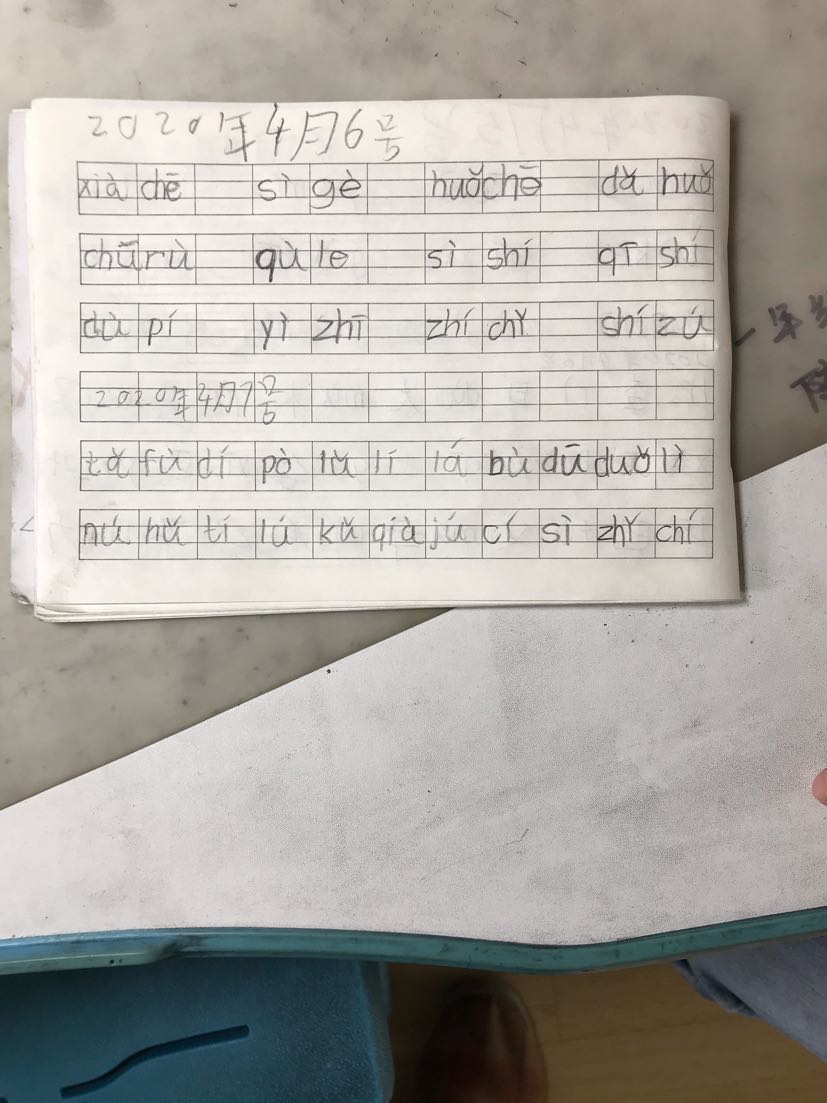 2020年4月6号
xià chē sì gè huǒchē dǎ huǒ
chū rù qù le sì shí qī shí
dù pí yì zhī zhí chǐ shí zú
2020年4月7号
tǎ fù dí pò lǔ lí lá bù dū duǒ lì
nú hǔ tí lú kǔ qià jú cí sì zhǐ chí